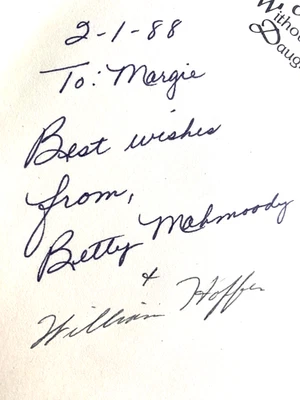 2-1-88
To: Margie
Best wishes
from,
Betty Mahmoody
+
William Hoffer